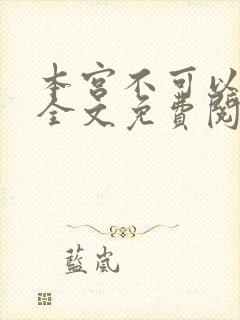 本宮不可以
全文免費閱
藍嵐